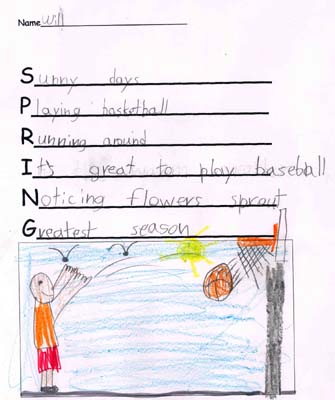 Name Will
Sunny days
Playing basketball
Running around
It's great to play baseball
Noticing flowers sprout
Greatest season